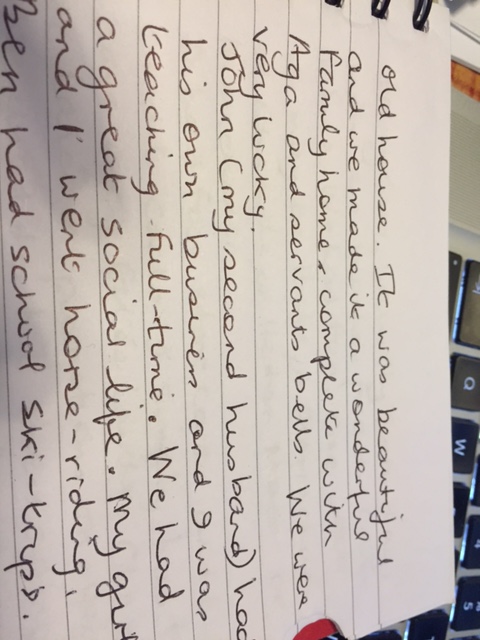 old house. It was beautiful
and we made it a wonderful
family home, complete with
Aga and servants bells. We were
very lucky.
John (my second husband) had
his own business and I was
teaching full-time. We had
a great social life. My
and I went horse-riding,
Ben had school ski-trips.
Q
W
S